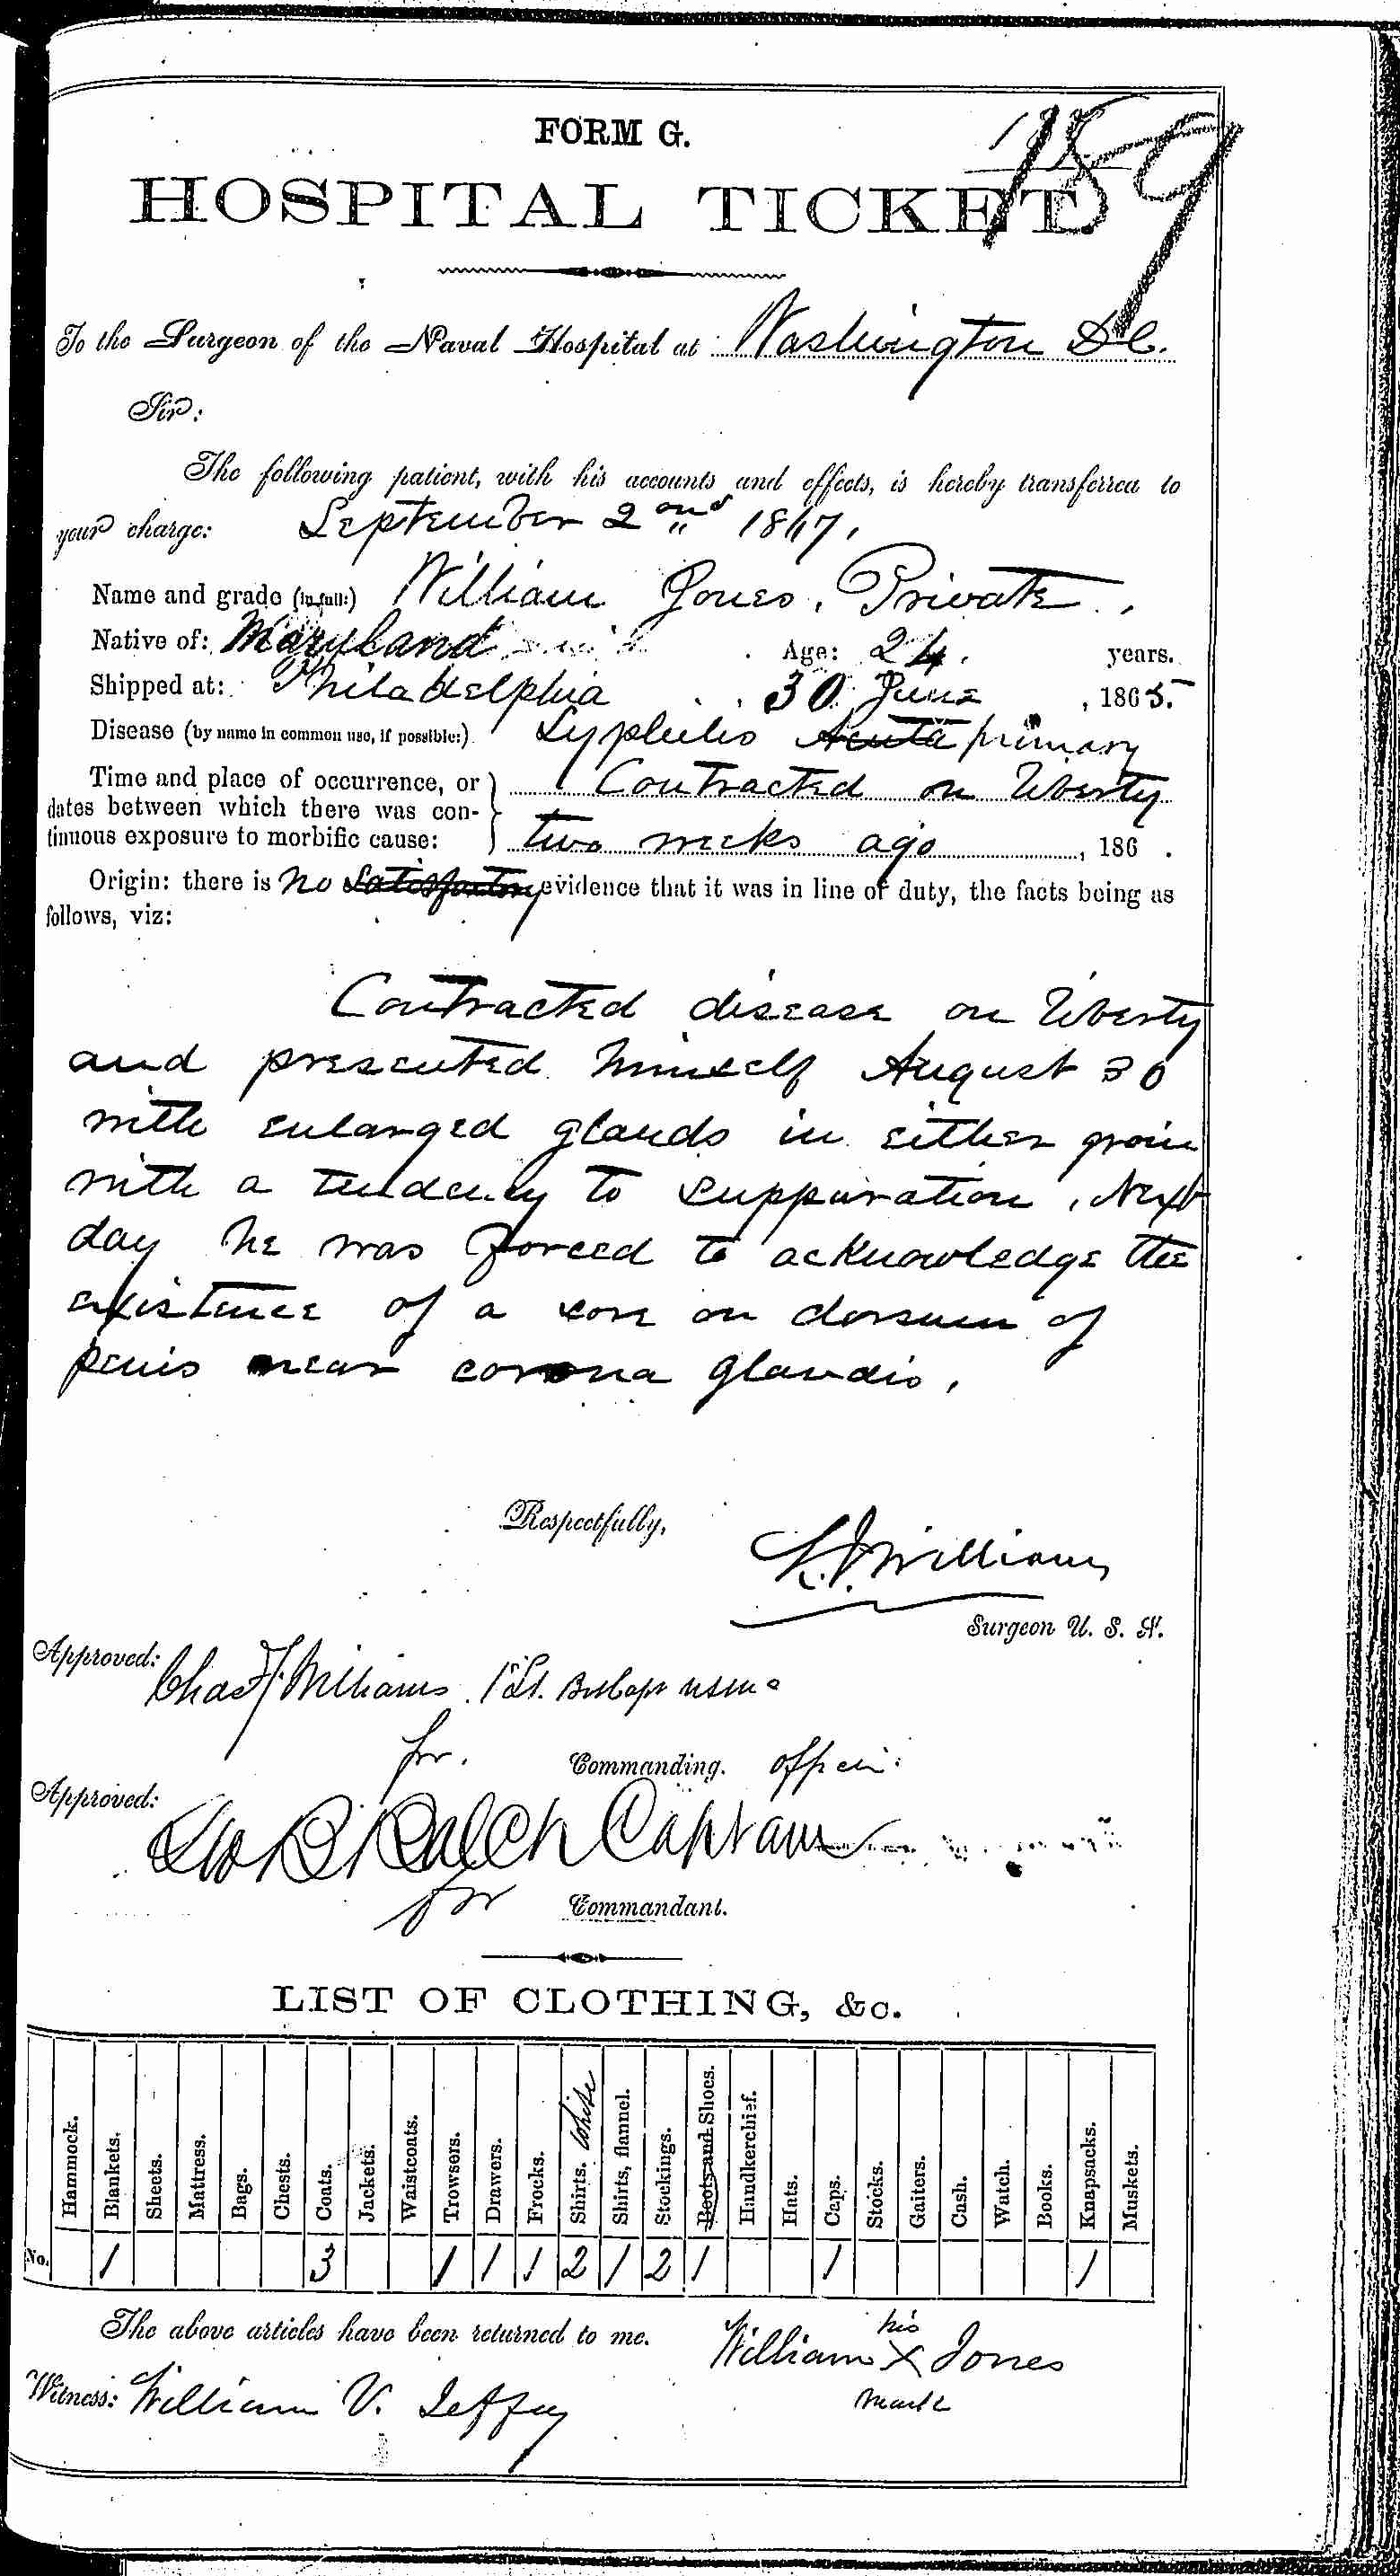 FORM G.
189
HOSPITAL TICKET
To the Surgeon of the Naval Hospital at Washington D.C.
Sir:
The following patient, with his accounts and effects, is hereby transferred to
your charge: September 2nd 1867.
Name and grade (in full:) William Jones, Private.
Native of: Maryland Age: 24. years.
Shipped at: Philadelphia 30 June, 1865.
Disease (by name in common use, if possible:) Syphilis Acuta primary
Time and place of occurrence, or
dates between which there was con-
tinuous exposure to morbific cause:
Contracted on liberty
two weeks ago, 186 .
Origin: there is no Satisfactory evidence that it was in line of duty, the facts being as
follows, viz:
Contracted disease on liberty
and presented himself August 30
with enlarged glands in either groin
with a tendency to suppuration, Next
day he was forced to acknowledge the
existence of a sore on dorsum of
penis near corona glandis,
Respectfully,
Williams
Surgeon U. S. N.
Approved: Chas F. Williams 1st Lt. USMC
for. Commanding. officer
Approved: B Balch Captain
for Commandant.
LIST OF CLOTHING, &c.
Hammock. Blankets. Sheets. Mattress. Bags. Chests. Coats. Jackets. Waistcoats. Trowsers. Drawers. Frocks. Shirts. White Shirts, flannel. Stockings. Boots and Shoes. Handkerchief. Hats. Caps. Stocks. Gaiters. Cash. Watch. Books. Knapsacks. Muskets.
No. 1 3 1 1 1 2 1 2 1 1 1
The above articles have been returned to me.
his
William X Jones
mark
Witness: William V.